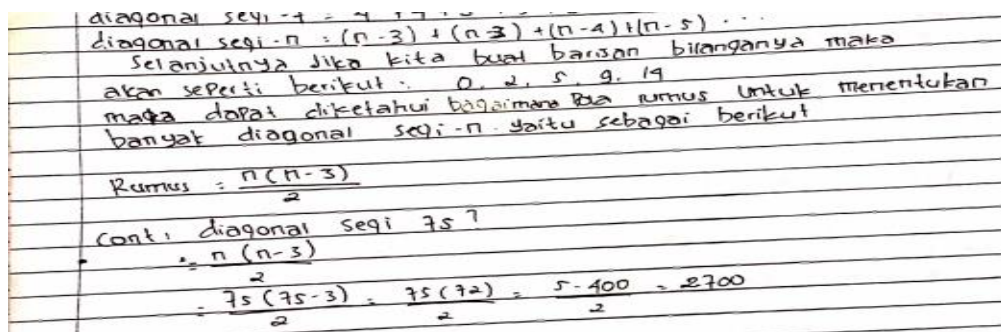 diagonal segi-7 = 4 + 4 +
diagonal segi-n = (n-3) + (n-3) + (n-4) + (n-5) ...
Selanjutnya Jika kita buat barisan bilanganya maka
akan seperti berikut : 0, 2, 5, 9, 14
maka dapat diketahui bagaimana rumus untuk menentukan
banyak diagonal segi-n yaitu sebagai berikut
Rumus = n(n-3) / 2
Cont : diagonal segi 75 ?
= n (n-3) / 2
= 75 (75-3) / 2 = 75 (72) / 2 = 5.400 / 2 = 2700